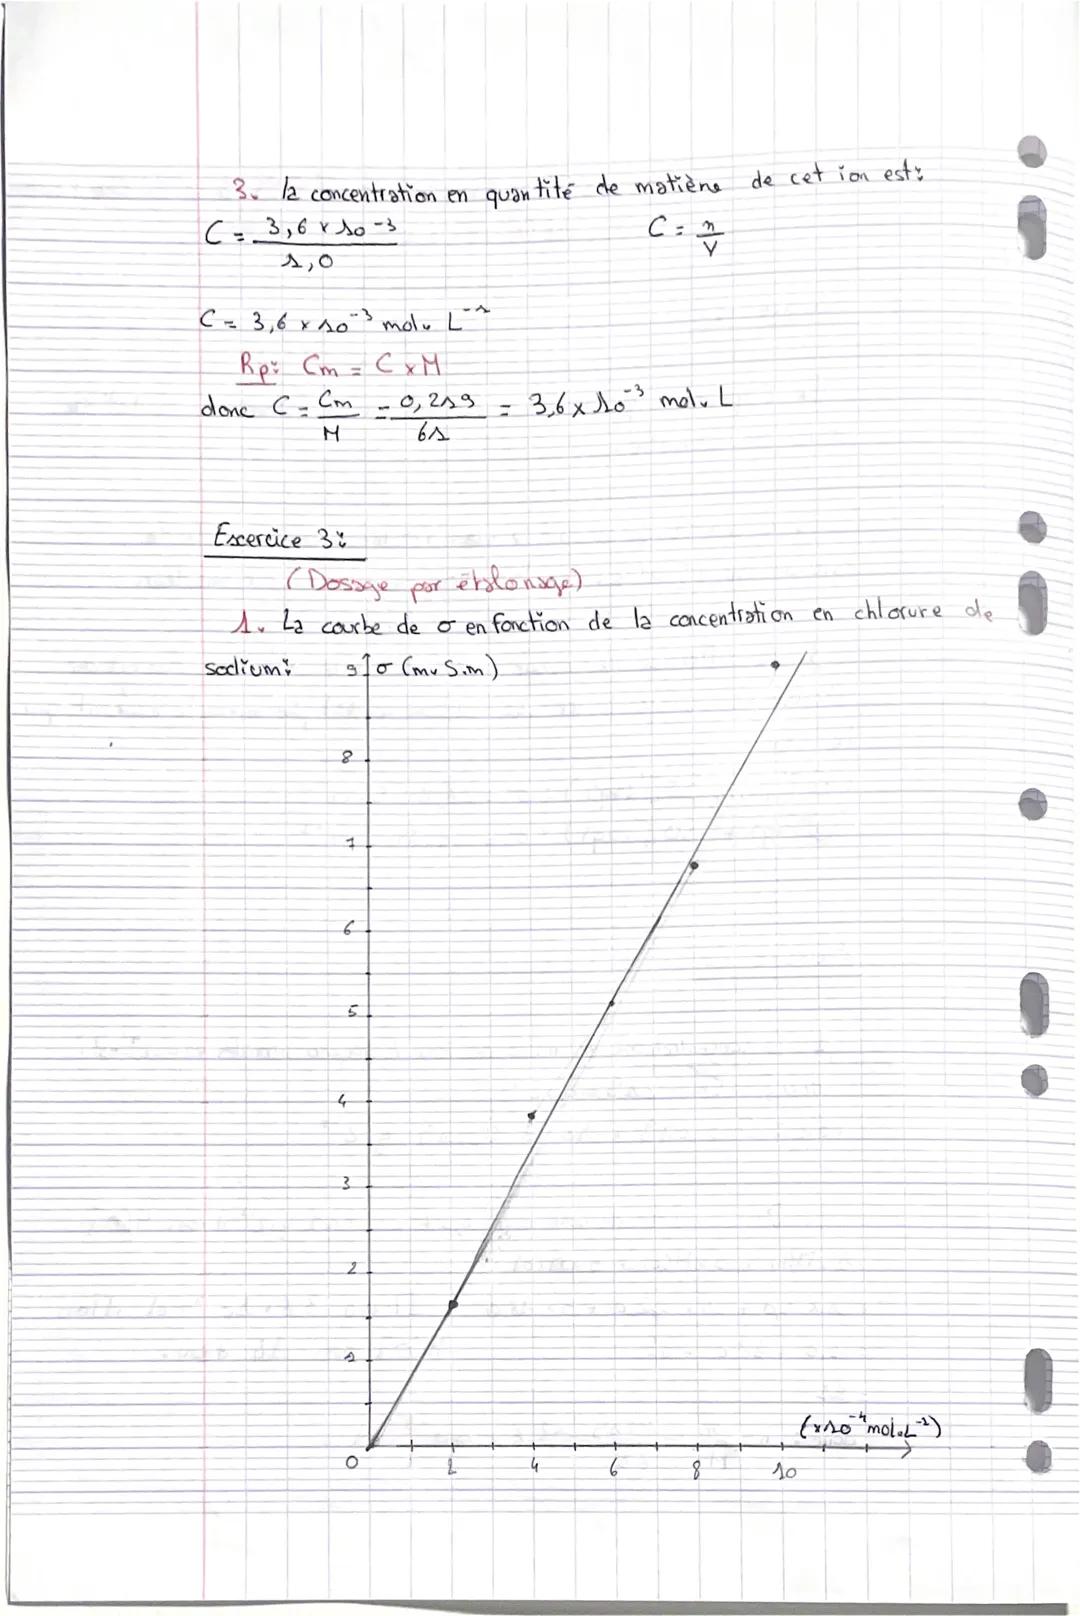 3. la concentration en quantité de matière de cet ion est:
C = 3,6 x 10-3 / 1,0
C = n / V
C = 3,6 x 10⁻³ mol. L⁻¹
Rp: Cm = C x M
donc C = Cm / M = 0,219 / 61 = 3,6 x 10⁻³ mol. L
Exercice 3:
(Dosage par étalonage)
1. La courbe de σ en fonction de la concentration en chlorure de
sodium:
9 σ (m. S.m)
8
7
6
5
4
3
2
1
(x10⁻⁴ mol.L⁻¹)
0 2 4 6 8 10